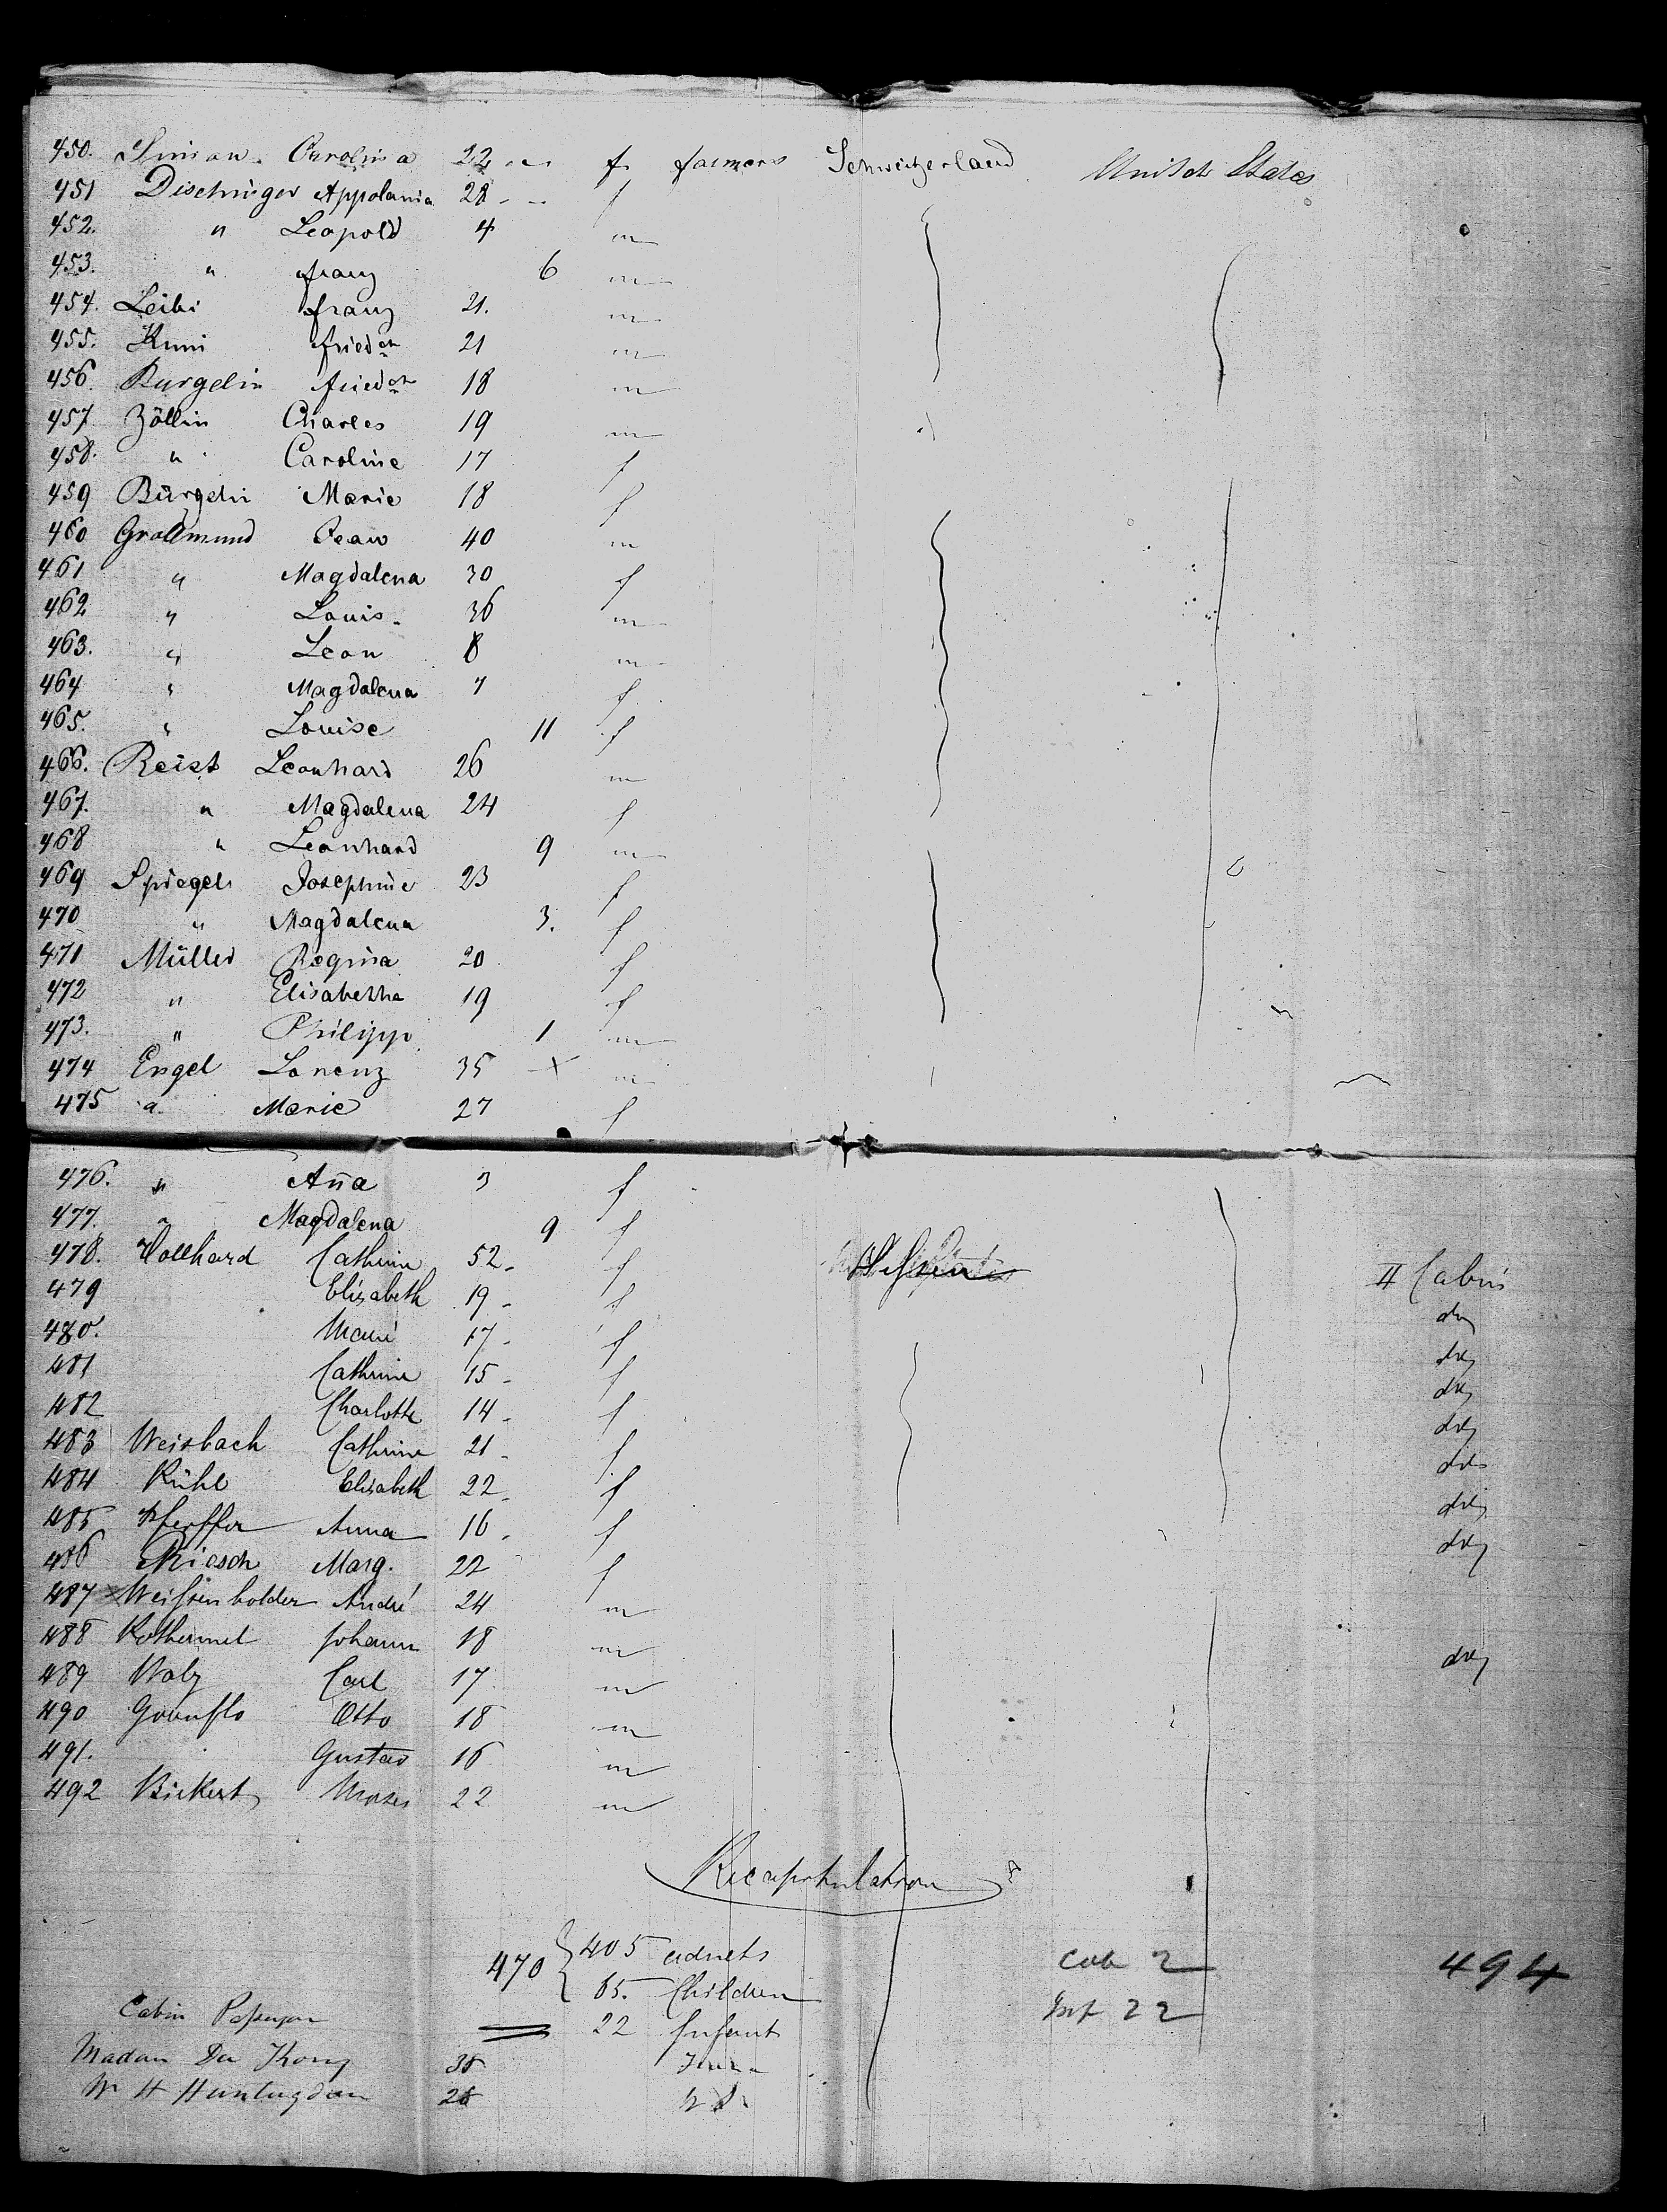 450. Simon Carolina 22 f. farmers Schweitzerland United States
451 Dischinger Appolania 28 f
452. " Leopold 4 m
453. " franz 6 m
454. Leibi franz 21. m
455. Kuni friedch 21 m
456. Burgelin friedch 18 m
457 Zöllin Charles 19 m
458. " Caroline 17 f
459 Bürgelin Marie 18 f
460 Grollmund Jean 40 m
461 " Magdalena 30 f
462 " Louis 36 m
463. " Leon 8 m
464 " Magdalena 7 f
465. " Louise 11 f
466. Reist Leonhard 26 m
467. " Magdalena 24 f
468 " Leonhard 9 m
469 Spiegel Josephine 23 f
470 " Magdalena 3. f
471 Müller Regina 20 f
472 " Elisabetha 19 f
473. " Philipp 1 m
474 Engel Lorenz 35 m
475 " Marie 27 f
476. " Aña 3 f
477. " Magdalena 9 f
478. Vollhard Cathrine 52 f II Cabin
479 Elisabeth 19 f do
480. Marie 17 f do
481 Cathrine 15 f do
482 Charlotte 14 f do
483 Weisbach Cathrine 21 f do
484 Kühl Elisabeth 22 f do
485 Pfeiffer Anna 16 f do
486 Riesch Marg. 22 f
487 Weissenholder André 24 m
488 Rothermel Johann 18 m do
489 Walz Carl 17 m
490 Otto 18 m
491. Gustav 16 m
492 Bickert Moses 22 m
Recapitulation
470 { 405 adults Cab 2 494
65. Children
22 Infant Inf 22
Cabin
Madam De 35
W H Huntingdon 26